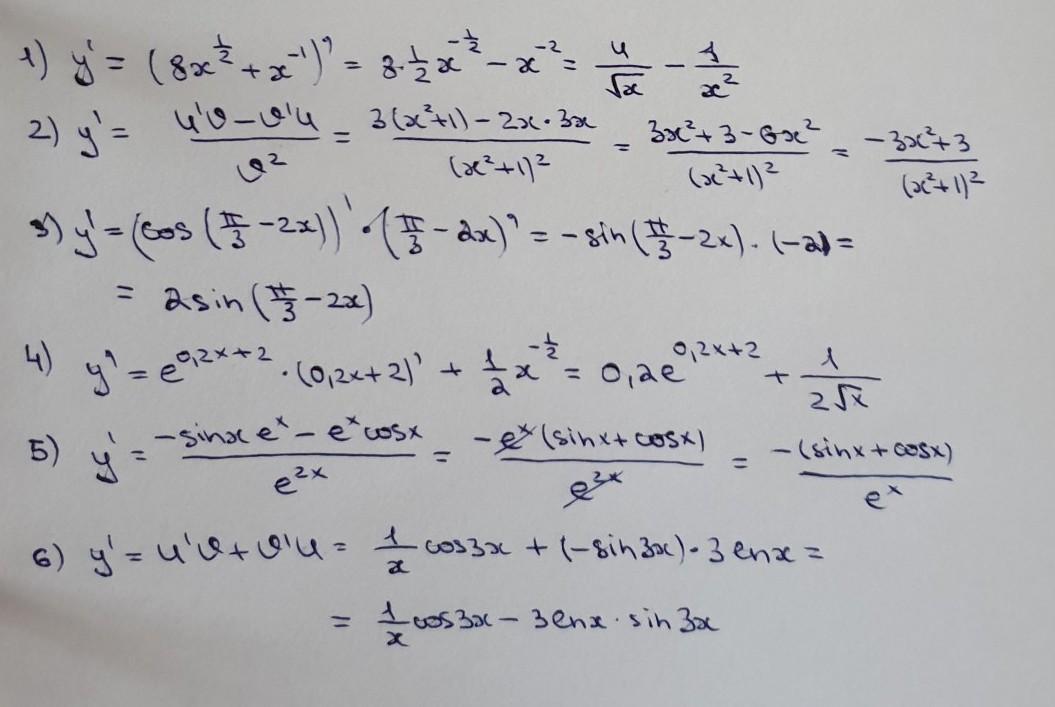 1) y' = (8x^{1/2} + x^{-1})' = 8·1/2 x^{-1/2} - x^{-2} = 4/√x - 1/x²
2) y' = (u'v - v'u)/v² = (3(x²+1) - 2x·3x)/(x²+1)² = (3x²+3-6x²)/(x²+1)² = (-3x²+3)/(x²+1)²
3) y' = (cos(π/3 - 2x))' · (π/3 - 2x)' = -sin(π/3 - 2x)·(-2) =
= 2sin(π/3 - 2x)
4) y' = e^{0,2x+2} · (0,2x+2)' + 1/2 x^{-1/2} = 0,2e^{0,2x+2} + 1/(2√x)
5) y' = (-sinx e^x - e^x cosx)/e^{2x} = (-e^x(sinx + cosx))/e^{2x} = (-(sinx + cosx))/e^x
6) y' = u'v + v'u = 1/x cos3x + (-sin3x)·3 lnx =
= 1/x cos3x - 3lnx · sin3x